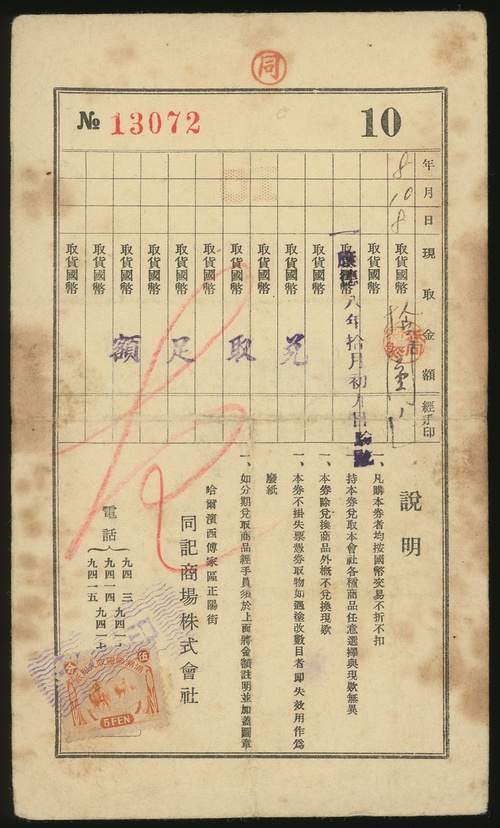 同
№ 13072
10
年
月
日
現取金額
經手印
8
10
8
取貨國幣
取貨國幣
取貨國幣
取貨國幣
取貨國幣
取貨國幣
取貨國幣
取貨國幣
取貨國幣
取貨國幣
取貨國幣
取貨國幣
康德八年拾月初八日
兌取足額
說明
一、凡購本券者均按國幣交易不折不扣
持本券兌取本會社各種商品任意選擇與現欵無異
一、本券除兌換商品外概不兌換現欵
一、本券不掛失票憑券取物如遇塗改數目者即失效用作爲
廢紙
一、如分期兌取商品經手員須於上面將金額註明並加蓋圖章
哈爾濱西傅家區正陽街
同記商場株式會社
電話
九四一四
九四一五
九四一七
伍
分
5 FEN